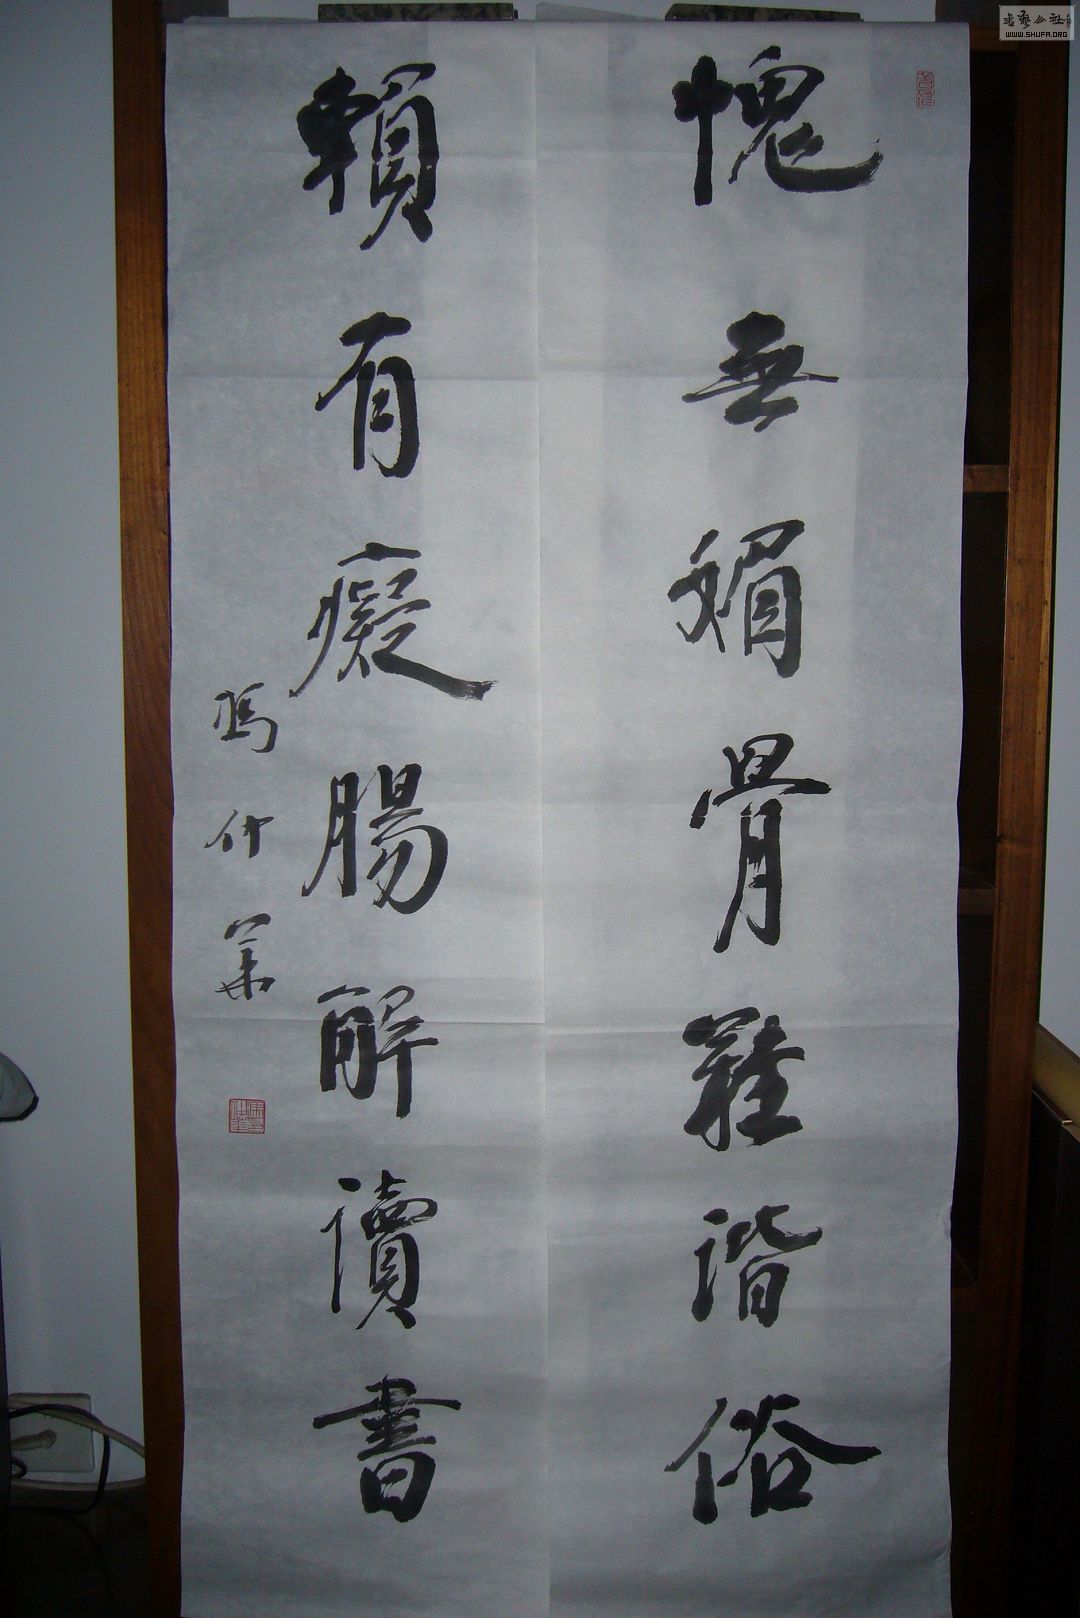 愧無媚骨難諧俗
賴有癡腸解讀書
馮仲華
書藝公社
WWW.SHUFA.ORG